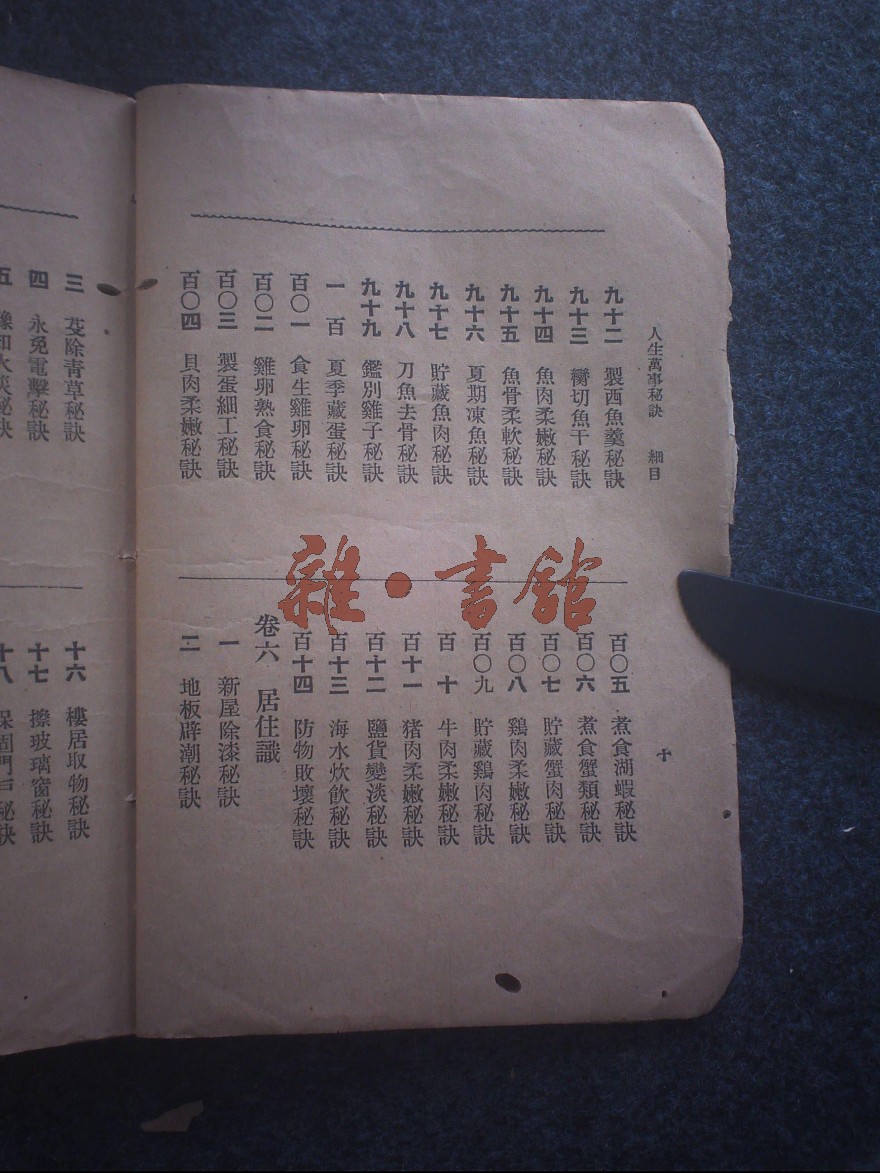 人生萬事秘訣 細目
十
九十二 製西魚羹秘訣
九十三 臠切魚干秘訣
九十四 魚肉柔嫩秘訣
九十五 魚骨柔軟秘訣
九十六 夏期凍魚秘訣
九十七 貯藏魚肉秘訣
九十八 刀魚去骨秘訣
九十九 鑑別雞子秘訣
一百 夏季藏蛋秘訣
百〇一 食生雞卵秘訣
百〇二 雞卵熟食秘訣
百〇三 製蛋細工秘訣
百〇四 貝肉柔嫩秘訣
百〇五 煮食湖蝦秘訣
百〇六 煮食蟹類秘訣
百〇七 貯藏蟹肉秘訣
百〇八 鷄肉柔嫩秘訣
百〇九 貯藏鷄肉秘訣
百十 牛肉柔嫩秘訣
百十一 猪肉柔嫩秘訣
百十二 鹽貨變淡秘訣
百十三 海水炊飲秘訣
百十四 防物敗壞秘訣
卷六 居住識
一 新屋除漆秘訣
二 地板辟潮秘訣
三 芟除青草秘訣
四 永免電擊秘訣
五
十六 樓居取物秘訣
十七 擦玻璃窗秘訣
十八 保固門戶秘訣
雜·書館